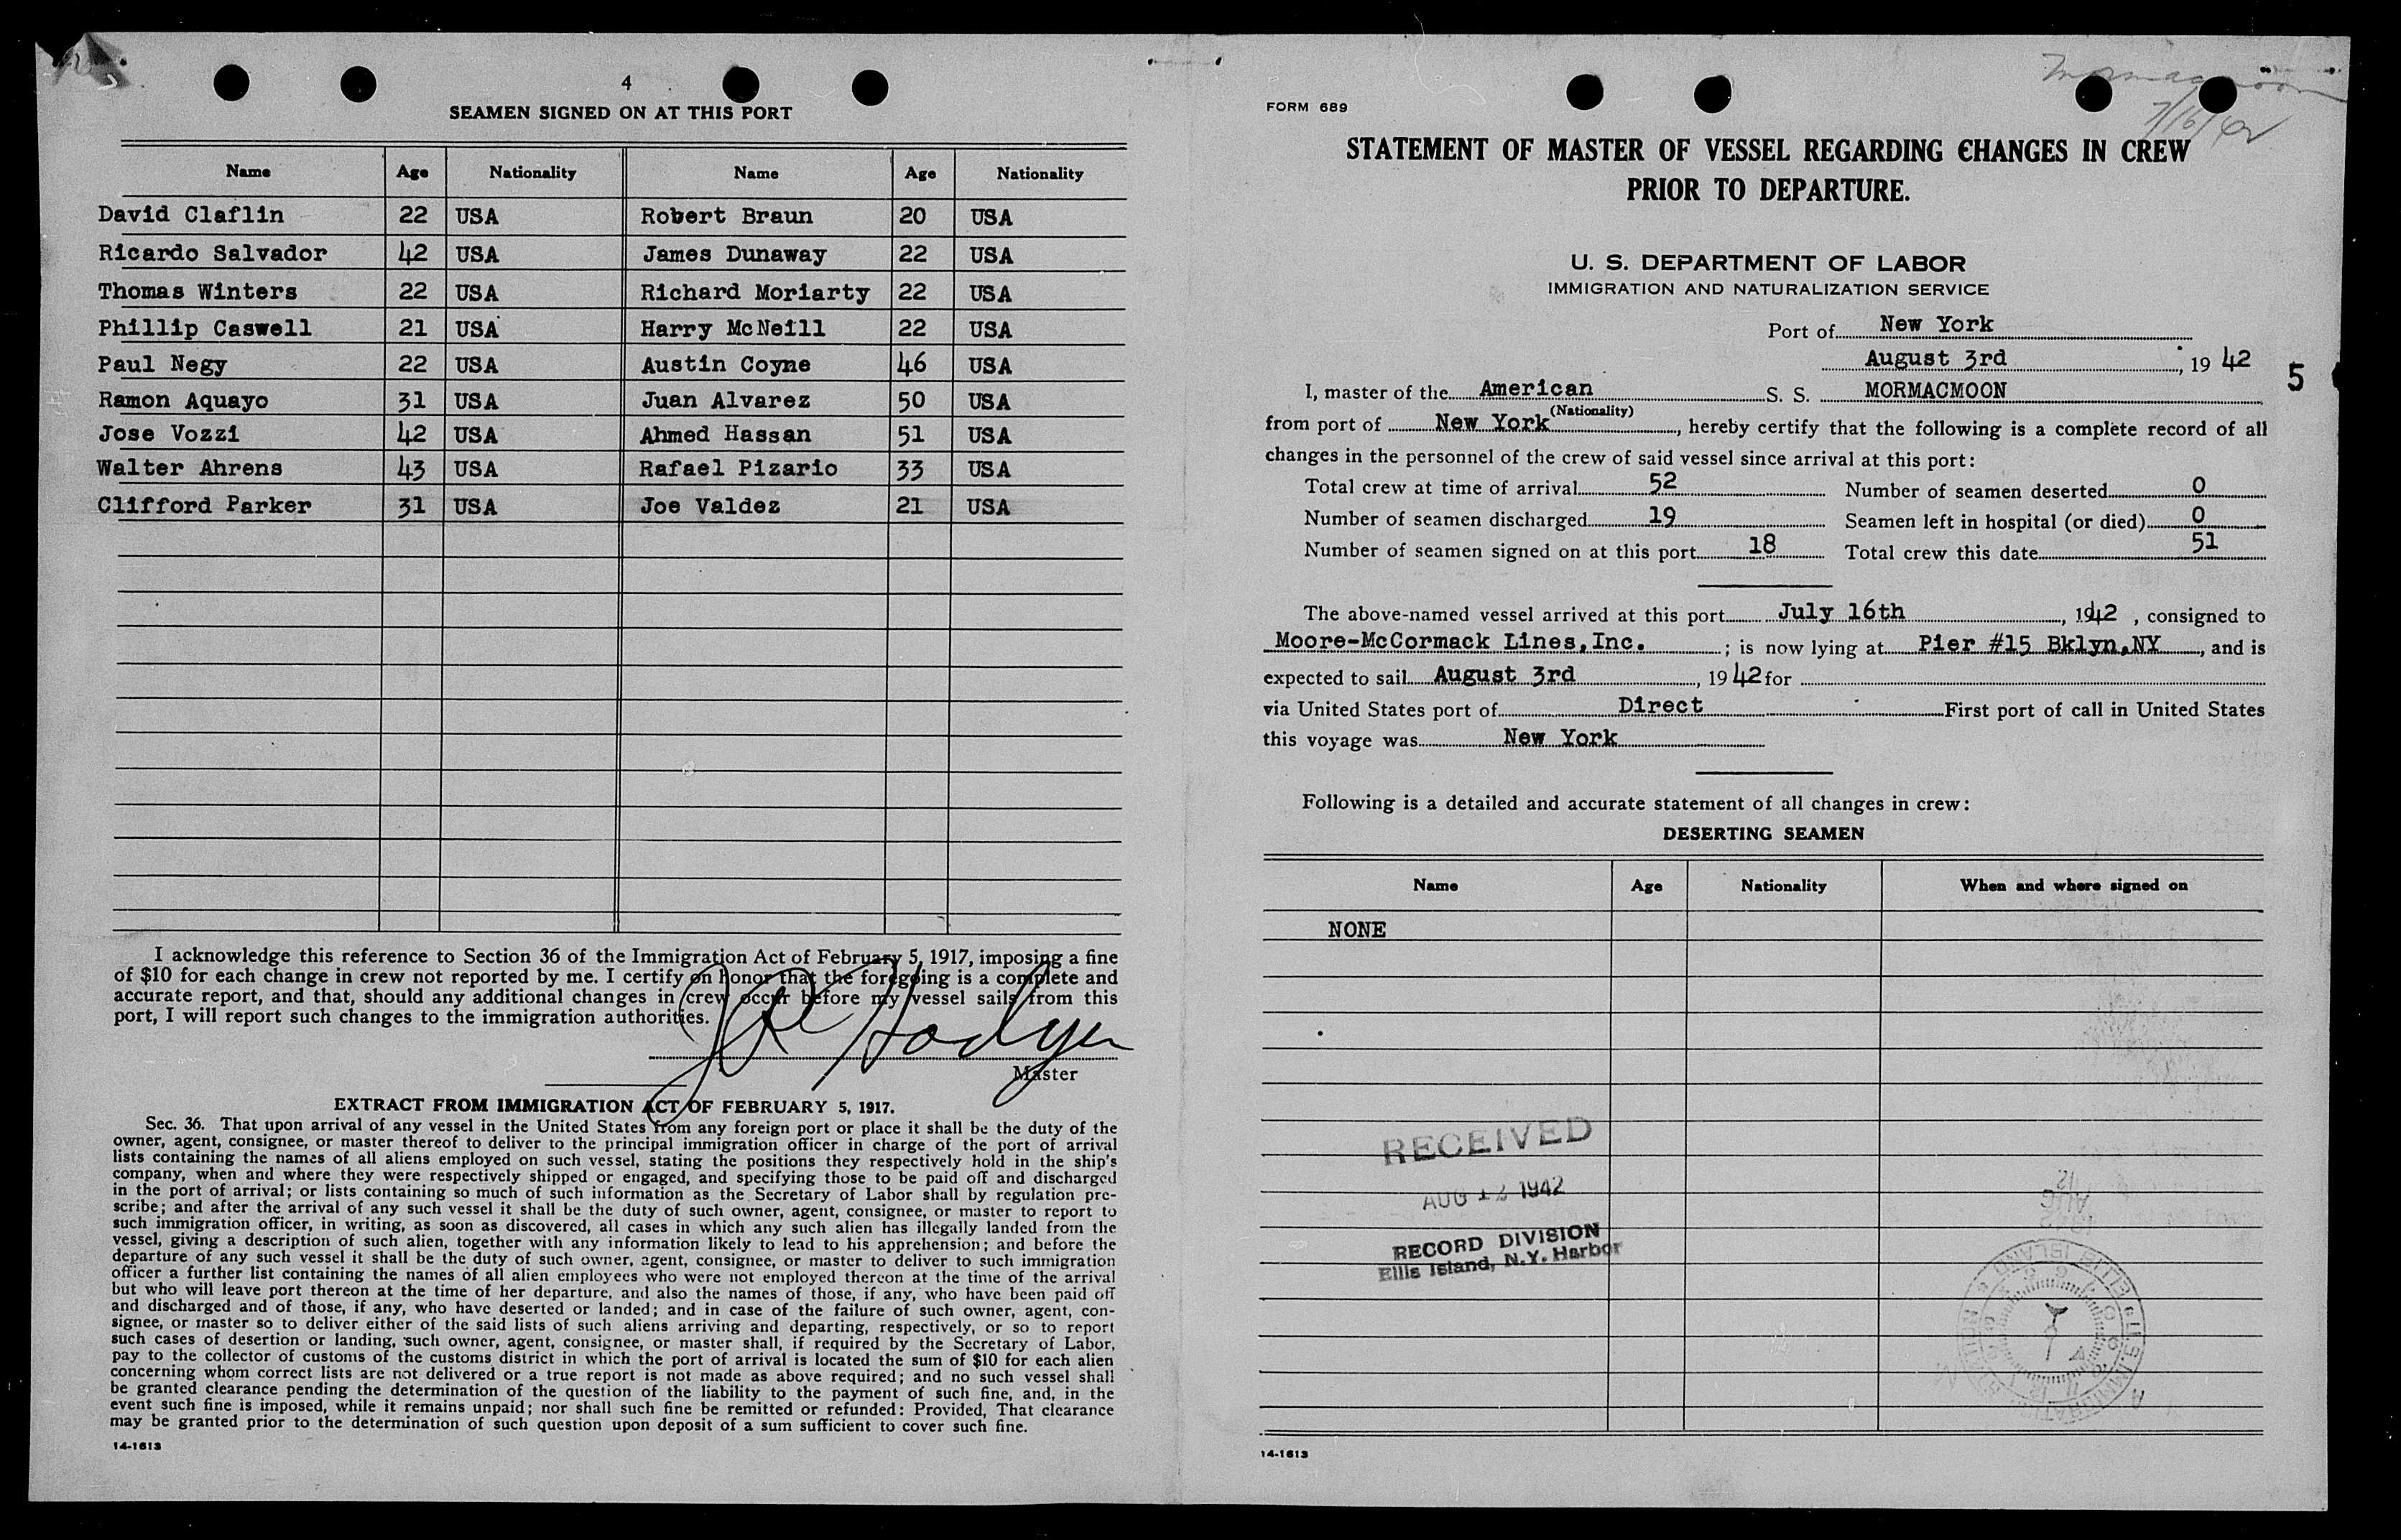 4
SEAMEN SIGNED ON AT THIS PORT
Name Age Nationality Name Age Nationality
David Claflin 22 USA Robert Braun 20 USA
Ricardo Salvador 42 USA James Dunaway 22 USA
Thomas Winters 22 USA Richard Moriarty 22 USA
Phillip Caswell 21 USA Harry McNeill 22 USA
Paul Negy 22 USA Austin Coyne 46 USA
Ramon Aquayo 31 USA Juan Alvarez 50 USA
Jose Vozzi 42 USA Ahmed Hassan 51 USA
Walter Ahrens 43 USA Rafael Pizario 33 USA
Clifford Parker 31 USA Joe Valdez 21 USA
I acknowledge this reference to Section 36 of the Immigration Act of February 5, 1917, imposing a fine
of $10 for each change in crew not reported by me. I certify on honor that the foregoing is a complete and
accurate report, and that, should any additional changes in crew occur before my vessel sails from this
port, I will report such changes to the immigration authorities.
Master
EXTRACT FROM IMMIGRATION ACT OF FEBRUARY 5, 1917.
Sec. 36. That upon arrival of any vessel in the United States from any foreign port or place it shall be the duty of the
owner, agent, consignee, or master thereof to deliver to the principal immigration officer in charge of the port of arrival
lists containing the names of all aliens employed on such vessel, stating the positions they respectively hold in the ship's
company, when and where they were respectively shipped or engaged, and specifying those to be paid off and discharged
in the port of arrival; or lists containing so much of such information as the Secretary of Labor shall by regulation pre-
scribe; and after the arrival of any such vessel it shall be the duty of such owner, agent, consignee, or master to report to
such immigration officer, in writing, as soon as discovered, all cases in which any such alien has illegally landed from the
vessel, giving a description of such alien, together with any information likely to lead to his apprehension; and before the
departure of any such vessel it shall be the duty of such owner, agent, consignee, or master to deliver to such immigration
officer a further list containing the names of all alien employees who were not employed thereon at the time of the arrival
but who will leave port thereon at the time of her departure, and also the names of those, if any, who have been paid off
and discharged and of those, if any, who have deserted or landed; and in case of the failure of such owner, agent, con-
signee, or master so to deliver either of the said lists of such aliens arriving and departing, respectively, or so to report
such cases of desertion or landing, such owner, agent, consignee, or master shall, if required by the Secretary of Labor,
pay to the collector of customs of the customs district in which the port of arrival is located the sum of $10 for each alien
concerning whom correct lists are not delivered or a true report is not made as above required; and no such vessel shall
be granted clearance pending the determination of the question of the liability to the payment of such fine, and, in the
event such fine is imposed, while it remains unpaid; nor shall such fine be remitted or refunded: Provided, That clearance
may be granted prior to the determination of such question upon deposit of a sum sufficient to cover such fine.
14-1613
Mormacmoon
7/16/42
FORM 689
STATEMENT OF MASTER OF VESSEL REGARDING CHANGES IN CREW
PRIOR TO DEPARTURE.
U. S. DEPARTMENT OF LABOR
IMMIGRATION AND NATURALIZATION SERVICE
Port of New York
August 3rd, 19 42
5
I, master of the American S. S. MORMACMOON
(Nationality)
from port of New York, hereby certify that the following is a complete record of all
changes in the personnel of the crew of said vessel since arrival at this port:
Total crew at time of arrival 52 Number of seamen deserted 0
Number of seamen discharged 19 Seamen left in hospital (or died) 0
Number of seamen signed on at this port 18 Total crew this date 51
The above-named vessel arrived at this port July 16th, 1942, consigned to
Moore-McCormack Lines,Inc. ; is now lying at Pier #15 Bklyn,NY, and is
expected to sail August 3rd, 19 42 for
via United States port of Direct First port of call in United States
this voyage was New York
Following is a detailed and accurate statement of all changes in crew:
DESERTING SEAMEN
Name Age Nationality When and where signed on
NONE
RECEIVED
AUG 12 1942
RECORD DIVISION
Ellis Island, N.Y. Harbor
14-1613